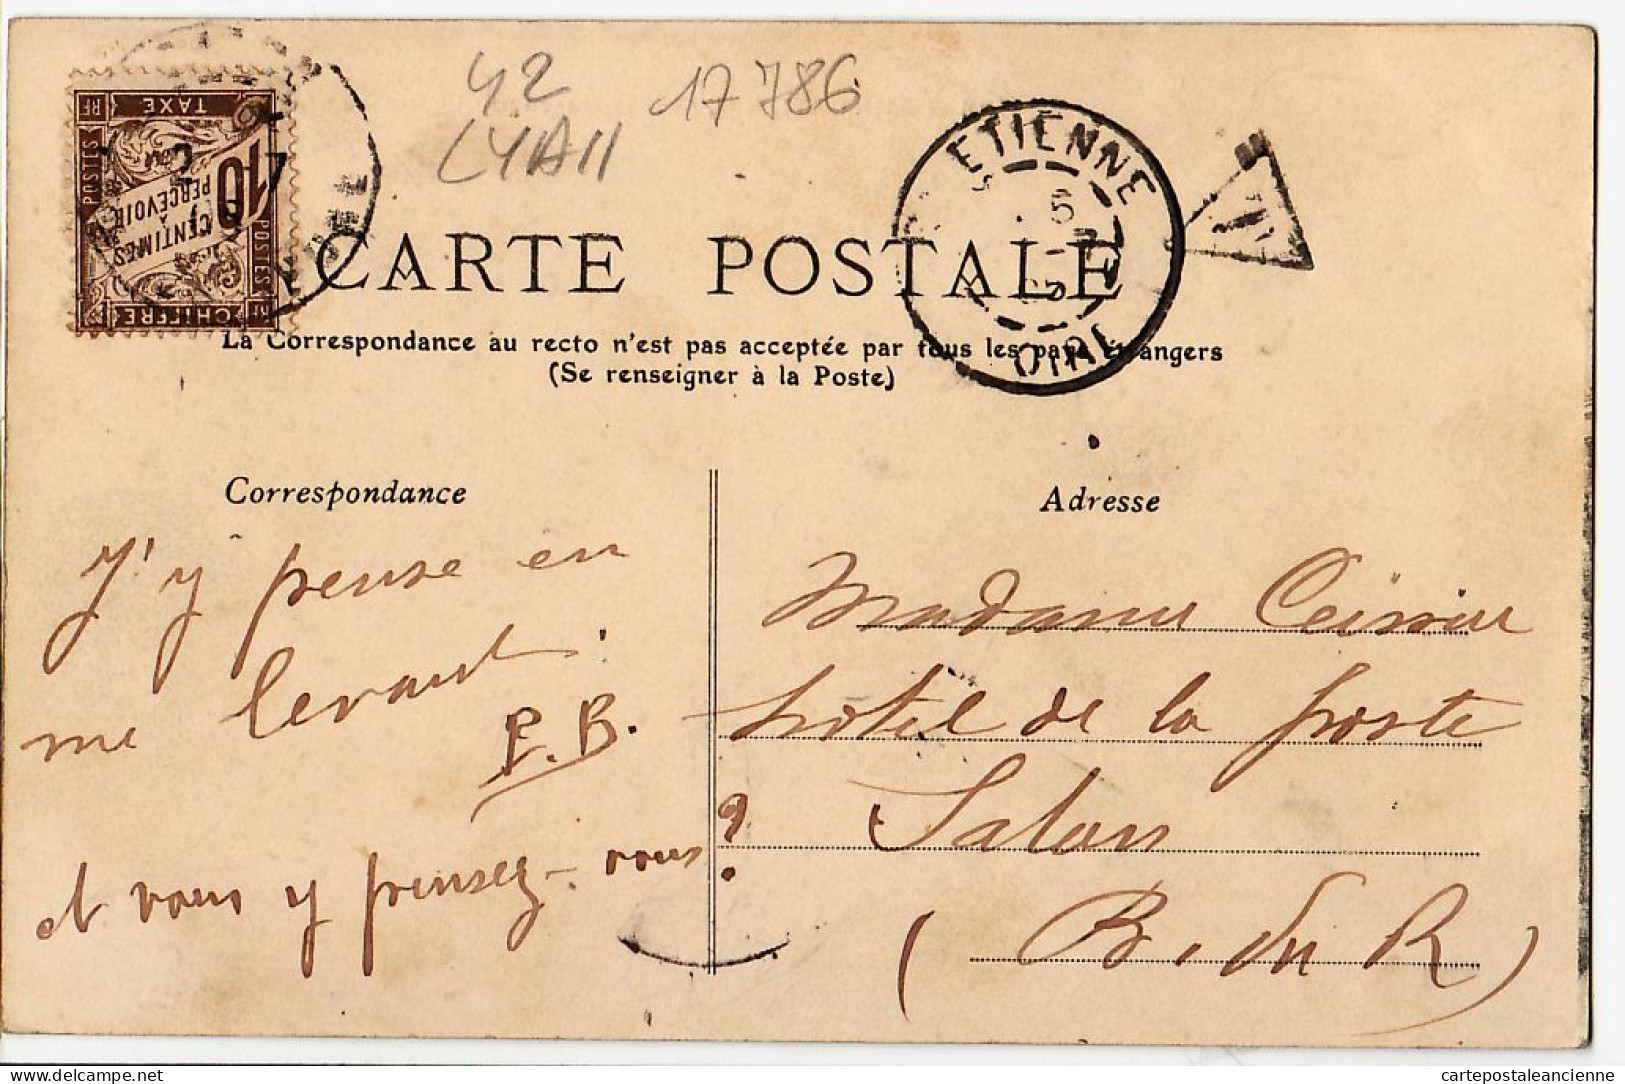 42 17786
LYA11
RF TAXE
POSTES
10
CENTIMES
À
PERCEVOIR
POSTES
CHIFFRE RF
ETIENNE
5
OIRE
T
CARTE POSTALE
La Correspondance au recto n'est pas acceptée par tous les pays étrangers
(Se renseigner à la Poste)
Correspondance
J'y pense en
me levant!
P.B.
et vous y pensez-vous?
Adresse
Madame
hôtel de la poste
Salon
(B. du R)
cartepostaleancienne